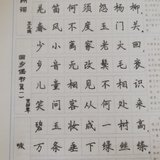 词
王之涣
羌笛何须怨杨柳
春风不度玉门关
回乡偶书(其一)
贺知章
少小离家老大回
乡音无改鬓毛衰
儿童相见不相识
笑问客从何处来
咏
碧玉妆成一树高
万条垂下绿丝绦